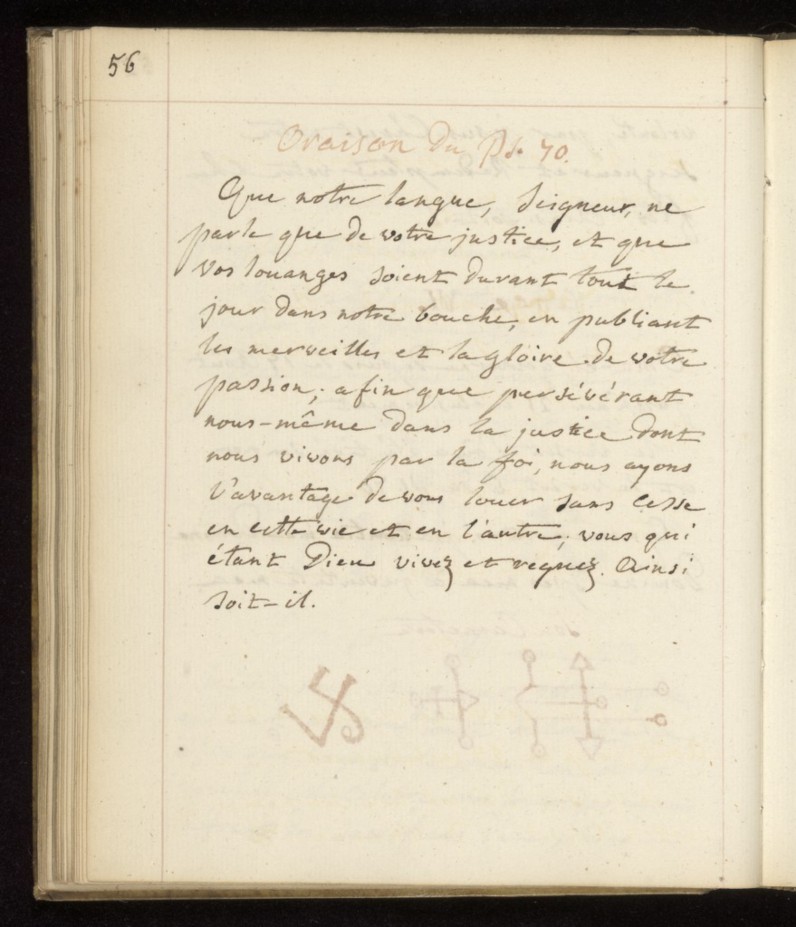 56
Oraison du Ps. 70.
Que notre langue, Seigneur, ne
parle que de votre justice, et que
vos louanges soient durant tout le
jour dans notre bouche, en publiant
les merveilles et la gloire de votre
passion; afin que persévérant
nous-même dans la justice dont
nous vivons par la foi, nous ayons
l'avantage de vous louer sans cesse
en cette vie et en l'autre; vous qui
étant Dieu vivez et regnez. Ainsi
soit-il.